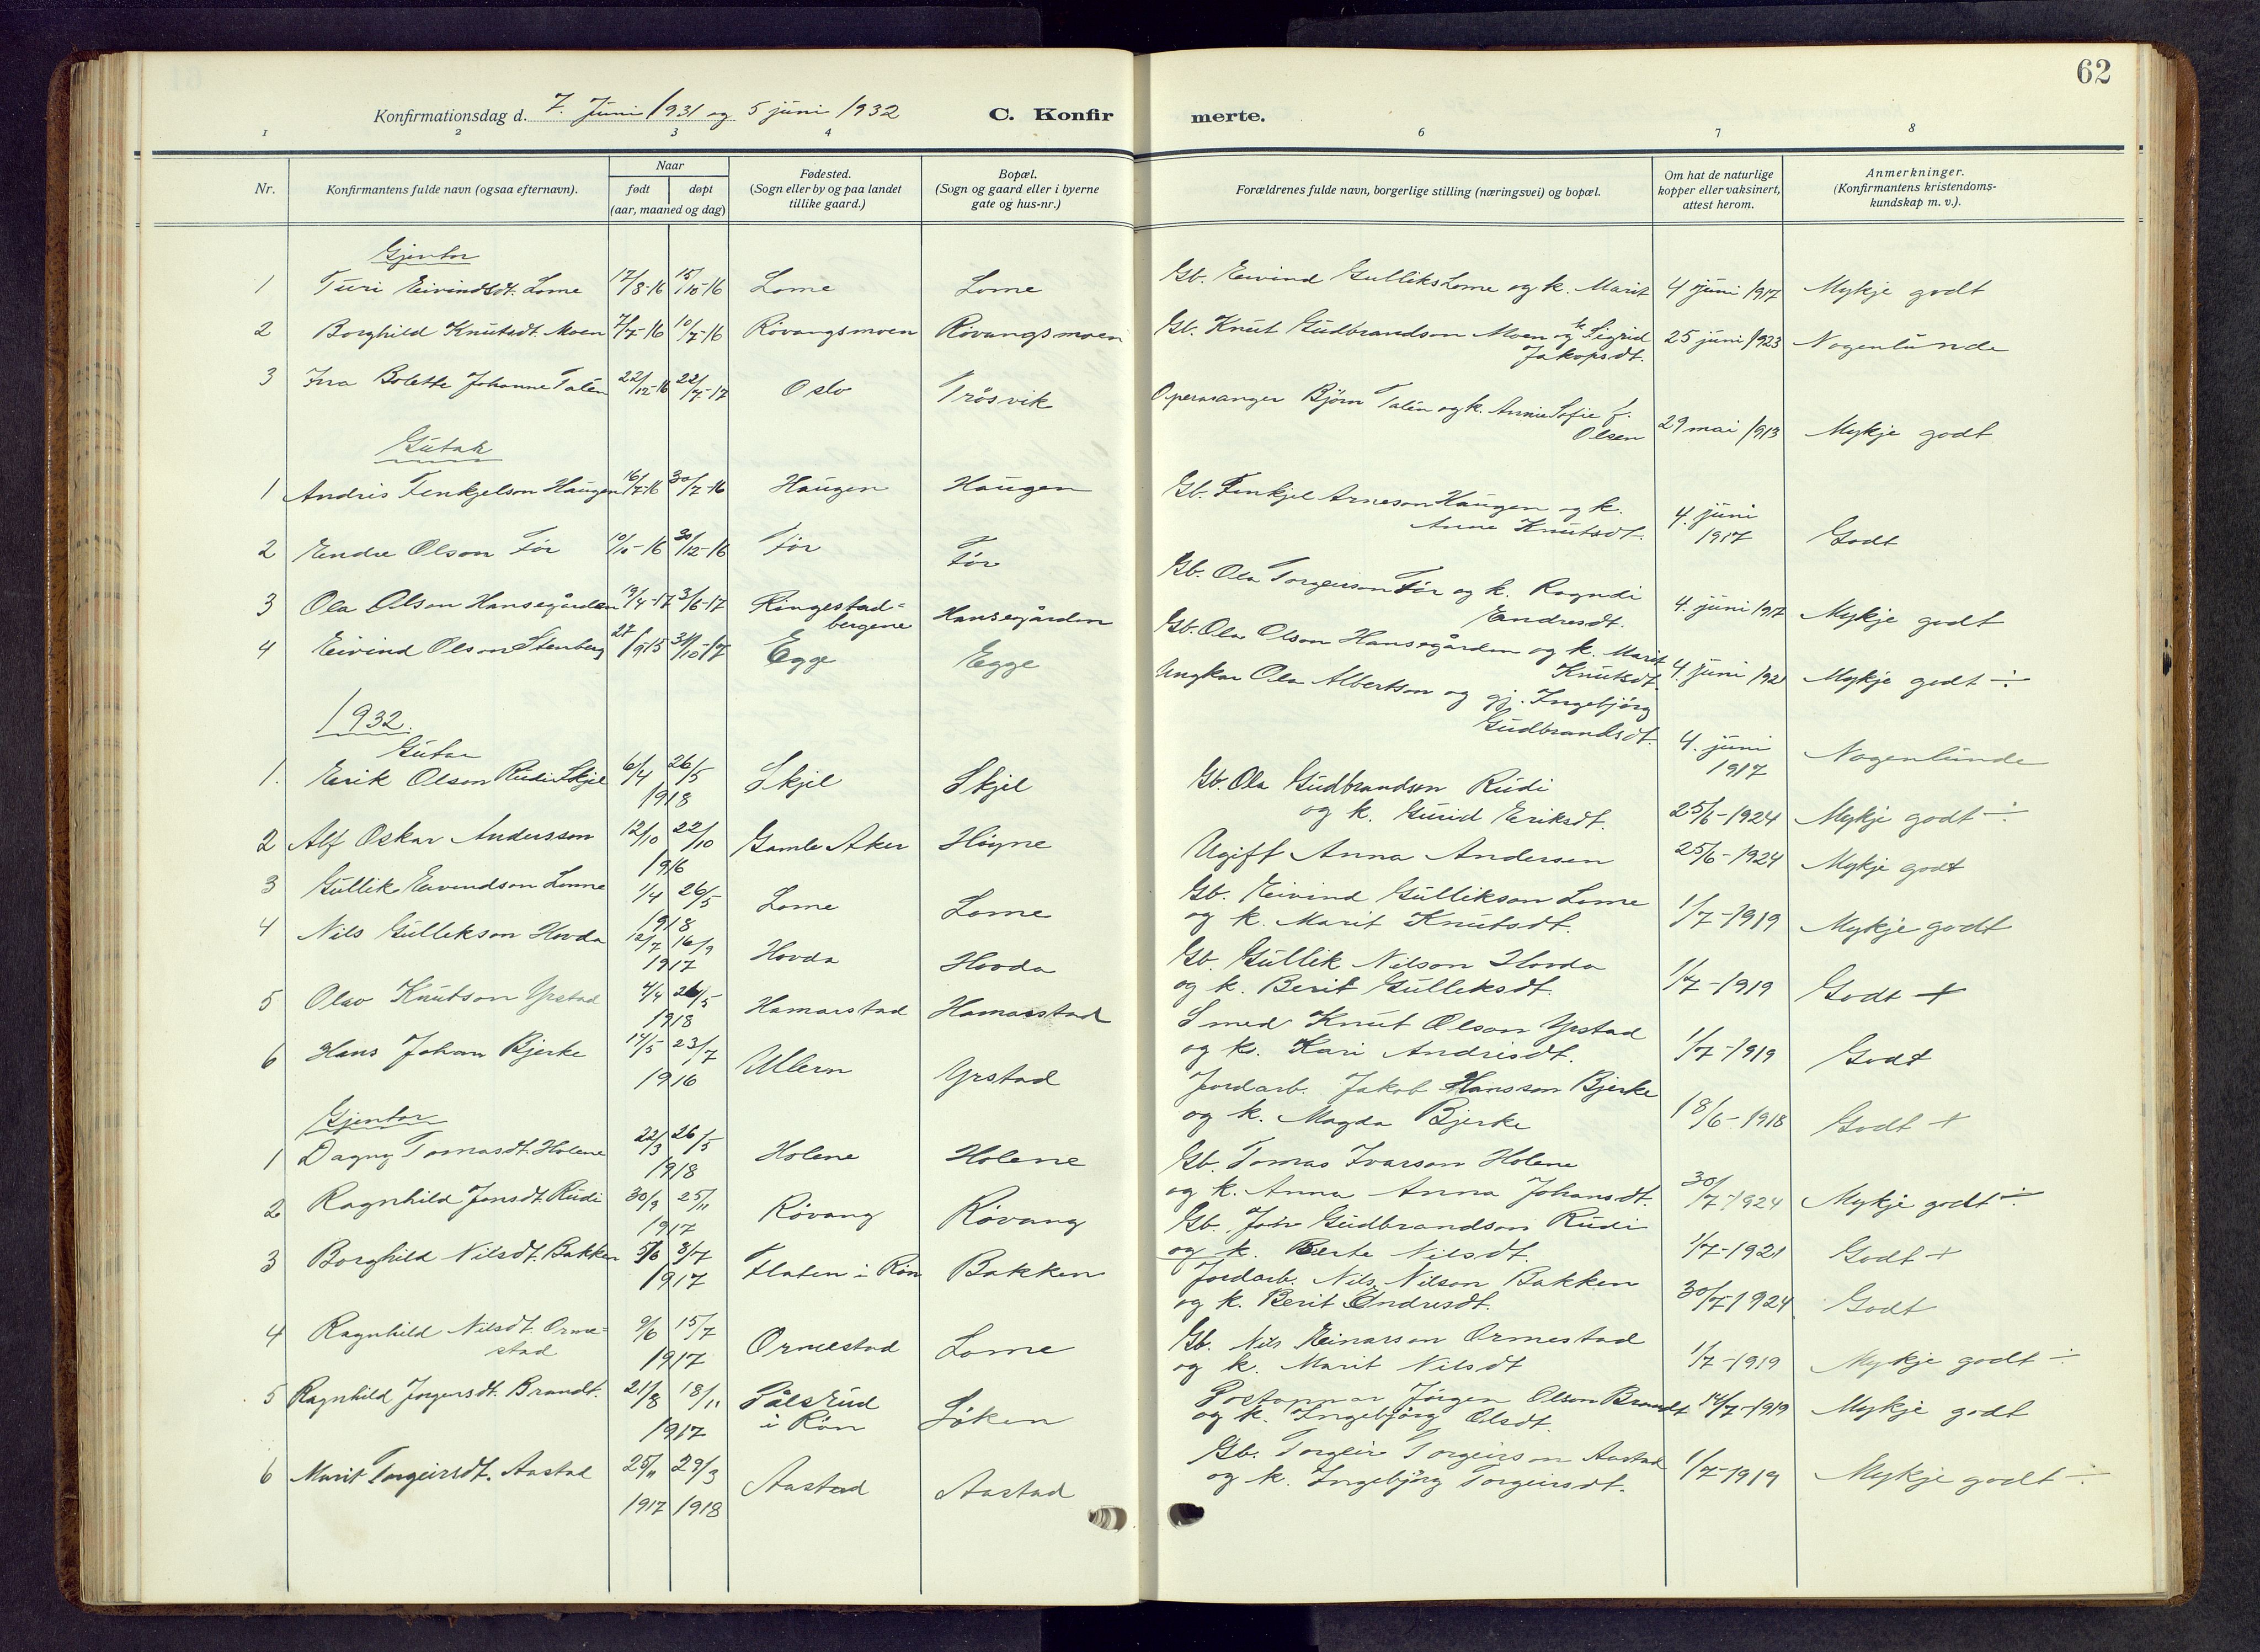 62
Konfirmationsdag d. 7. Juni 1931 og 5 juni 1932 C. Konfirmerte.
1 2 3 4 6 7 8
Nr. Konfirmantens fulde navn (ogsaa efternavn). Naar født døpt (aar, maaned og dag) Fødested. (Sogn eller by og paa landet tillike gaard.) Bopæl. (Sogn og gaard eller i byerne gate og hus-nr.) Forældrenes fulde navn, borgerlige stilling (næringsvei) og bopæl. Om hat de naturlige kopper eller vaksinert, attest herom. Anmerkninger. (Konfirmantens kristendomskundskap m. v.).
Gjentor
1 Turi Eivindsdt. Lome 17/8-16 15/10-16 Lome Lome Gb. Eivind Gulliks Lome og k. Marit 4 juni 1917 Mykje godt
2 Borghild Knutsdt. Moen 7/7-16 10/7-16 Røvangsmoen Røvangsmoen Gb. Knut Gudbrandson Moen og k. Sigrid Jakopsdt. 25 juni 1923 Nogenlunde
3 Bolette Johanne Talén 22/12-16 22/7-17 Oslo Trøsvik Operasanger Bjørn Talén og k. Annie Sofie f. Olsen 29 mai 1913 Mykje godt
Gutar
1 Andris Tenkjelson Haugen 16/7-16 30/7-16 Haugen Haugen Gb. Tenkjel Arneson Haugen og k. Anne Knutsdt. 4. juni 1917 Godt
2 Endre Olson Før 10/11-16 30/12-16 Før Før Gb. Ola Torgeirson Før og k. Ragndi Endresdt. 4. juni 1917 Mykje godt
3 Ola Olson Hansegården 19/4-17 3/6-17 Ringestadbergene Hansegården Gb. Ola Olson Hansegården og k. Marit Knutsdt. 4 juni 192 Mykje godt ÷
4 Eivind Olson Stenberg 27/9-15 31/10-17 Egge Egge Ungkar Ola Albertson og gj. Ingebjørg Gudbrandsdt. 4. juni 1917 Nogenlunde
1932.
Gutar
1. Erik Olson Rudi Skjel 6/4 26/5 1918 Skjel Skjel Gb. Ola Gudbrandson Rudi og k. Gurid Eriksdt. 25/6-1924 Mykje godt ÷
2 Alf Oskar Andersson 12/10 22/10 1916 Gamle Aker Høyne Ugift Anna Andersen 25/6-1924 Mykje godt
3 Gullik Eivindson Lome 1/4 26/5 1918 Lome Lome Gb. Eivind Gullikson Lome og k. Marit Knutsdt. 1/7-1919 Mykje godt
4 Nils Gullekson Hovda 12/7 16/9 1917 Hovda Hovda Gb. Gullik Nilson Hovda og k. Berit Gulleksdt. 1/7-1919 Godt +
5 Olav Knutson Yrstad 4/4 26/5 1918 Hamarstad Hamarstad Smed Knut Olson Yrstad og k. Kari Andrisdt. 1/7-1919 Godt
6 Hans Johan Bjerke 14/5 23/7 1916 Ullern Yrstad Jordarb. Jakob Hansson Bjerke og k. Magda Bjerke 18/6-1918 Godt +
Gjentor
1 Dagny Tomasdt. Holene 22/3 26/5 1918 Holene Holene Gb. Tomas Ivarson Holene og k. Anna Anna Johansdt. 30/7-1924 Mykje godt ÷
2 Ragnhild Jonsdt. Rudi 30/9 25/11 1917 Røvang Røvang Gb. Jon Gudbrandson Rudi og k. Berte Nilsdt. 1/7-1921 Godt +
3 Borghild Nilsdt. Bakken 5/6 8/7 1917 Flaten i Røn Bakken Jordarb. Nils Nilson Bakken og k. Berit Endresdt. 30/7-1924 Godt
4 Ragnhild Nilsdt. Ormestad 9/6 15/7 1917 Ormestad Lome Gb. Nils Einarson Ormestad og k. Marit Nilsdt 1/7-1919 Mykje godt ÷
5 Ragnhild Jørgensdt. Brandt. 21/8 18/11 1917 Pålsrud i Røn Løken Postopnar Jørgen Olson Brandt og k. Ingebjørg Olsdt. 14/7-1919 Mykje godt
6 Marit Torgeirsdt. Aastad 25/11 1917 29/3 1918 Aastad Aastad Gb. Torgeir Torgeirson Aastad og k. Ingebjørg Torgeirsdt. 1/7-1919 Mykje godt ÷